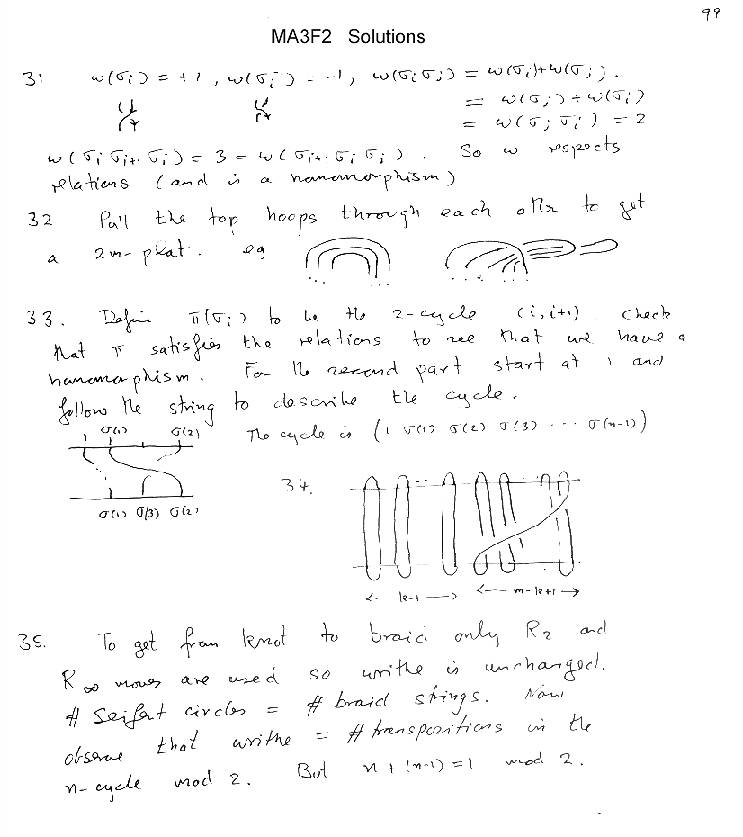 99
MA3F2 Solutions
31 w(σi) = +1, w(σi⁻) = -1, w(σiσj) = w(σi)+w(σj).
= w(σj)+w(σi)
= w(σj σi) = 2
w(σi σi+1 σi) = 3 = w(σi+1 σi σi+1). So w respects
relations (and is a homomorphism)
32 Pull the top hoops through each other to get
a 2m-plat. eg
33. Define π(σi) to be the 2-cycle (i, i+1). Check
that π satisfies the relations to see that we have a
homomorphism. For the second part start at 1 and
follow the string to describe the cycle.
σ(1) σ(2) The cycle is (1 σ(1) σ(2) σ(3) ... σ(n-1))
σ(1) σ(3) σ(2)
34.
<- k-1 --> <--- m-k+1 ->
35. To get from knot to braid only R2 and
R∞ moves are used so writhe is unchanged.
# Seifert circles = # braid strings. Now
observe that writhe = # transpositions in the
n-cycle mod 2. But n + (n-1) = 1 mod 2.